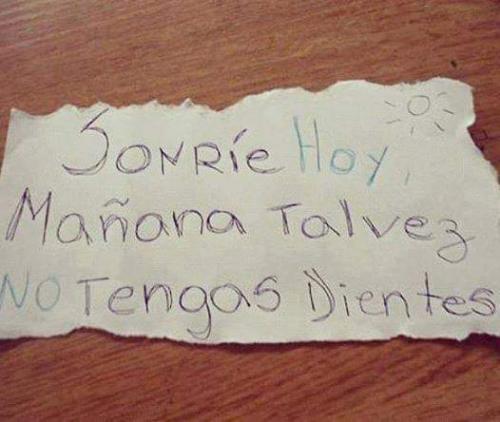 Sonríe Hoy,
Mañana Talvez
NO Tengas Dientes